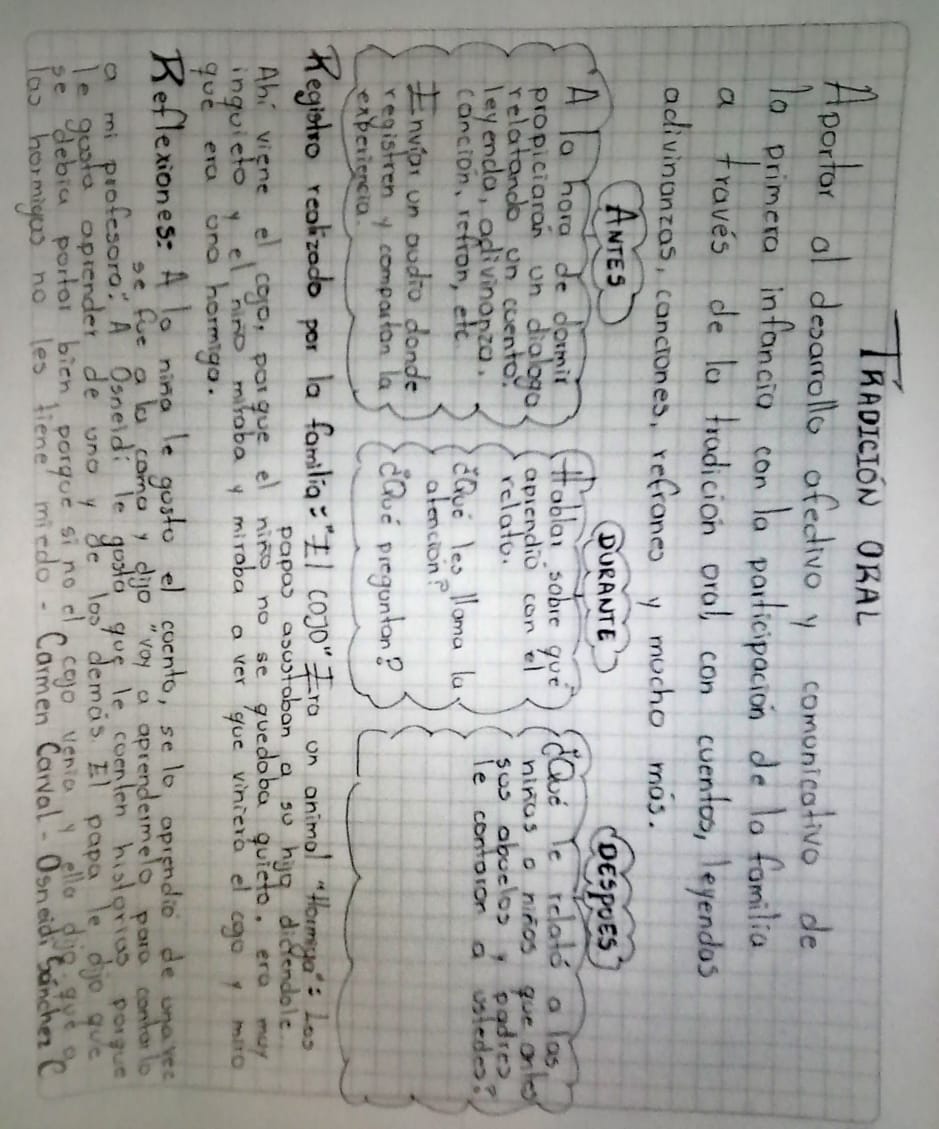 TRADICIÓN ORAL
Aportar al desarrollo afectivo y comunicativo de
la primera infancia con la participación de la familia
a través de la tradición oral, con cuentos, leyendas
adivinanzas, canciones, refranes y mucho más.
ANTES
A la hora de dormir
propiciarán un dialogo
relatando un cuento,
leyenda, adivinanza,
canción, refran, etc
Enviar un audio donde
registren y compartan la
experiencia.
DURANTE
Hablar sobre qué
aprendio con el
relato.
¿Qué les llama la
atencion?
¿Qué preguntan?
DESPUES
¿Qué le relató a las
niñas o niños que antes
sus abuelos y padres
le contaron a ustedes?
Registro realizado por la familia: "El cojo" Era un animal "Hormiga": Los
papas asustaban a su hijo diciendole
Ahí viene el cojo, porque el niño no se quedaba quieto, era muy
inquieto y el niño miraba y miraba a ver que viniera el cojo y miro
que era una hormiga.
Reflexiones: A la niña le gusto el cuento, se lo aprendio de una vez
se fue a la cama y dijo "voy a aprendermelo para contarlo
a mi profesora". A Osneidi le gosta que le cuenten historias porque
le gusta aprender de uno y de los demás. El papa le dijo que
se debia portar bien porque si no el cojo venia y ella dijo que a
las hormigas no les tiene miedo - Carmen Carval - Osneidi Sánchez C